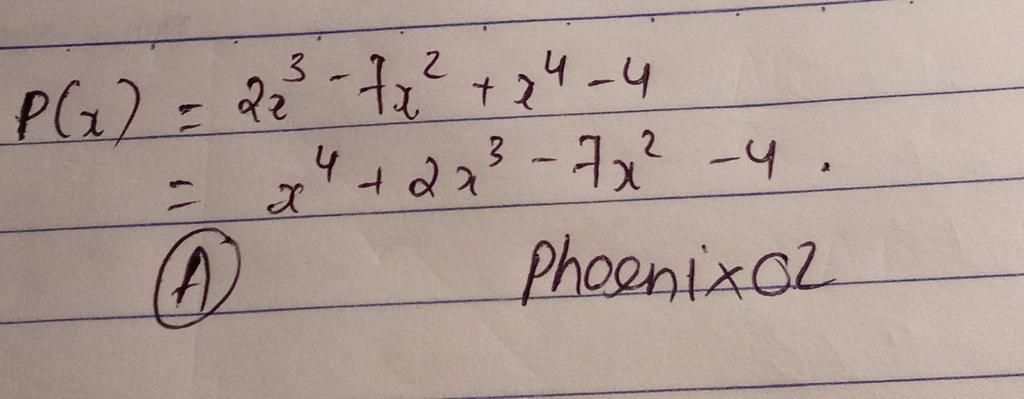 P(x) = 2x³ - 7x² + x⁴ - 4
= x⁴ + 2x³ - 7x² - 4.
A Phoenix02